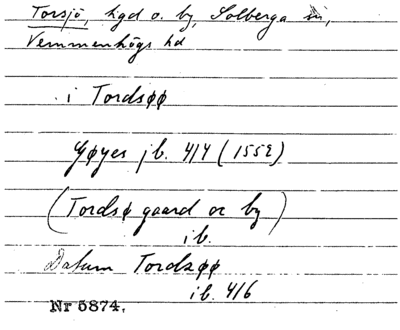 Torsjö, hgd o. by, Solberga sn,
Vemmenhögs hd
i Tordsøø
Gøyes jb. 4/4 (1552)
(Tordsø gaard oc by)
ib.
Datum Tordzøø
ib. 4/6
Nr 5874.